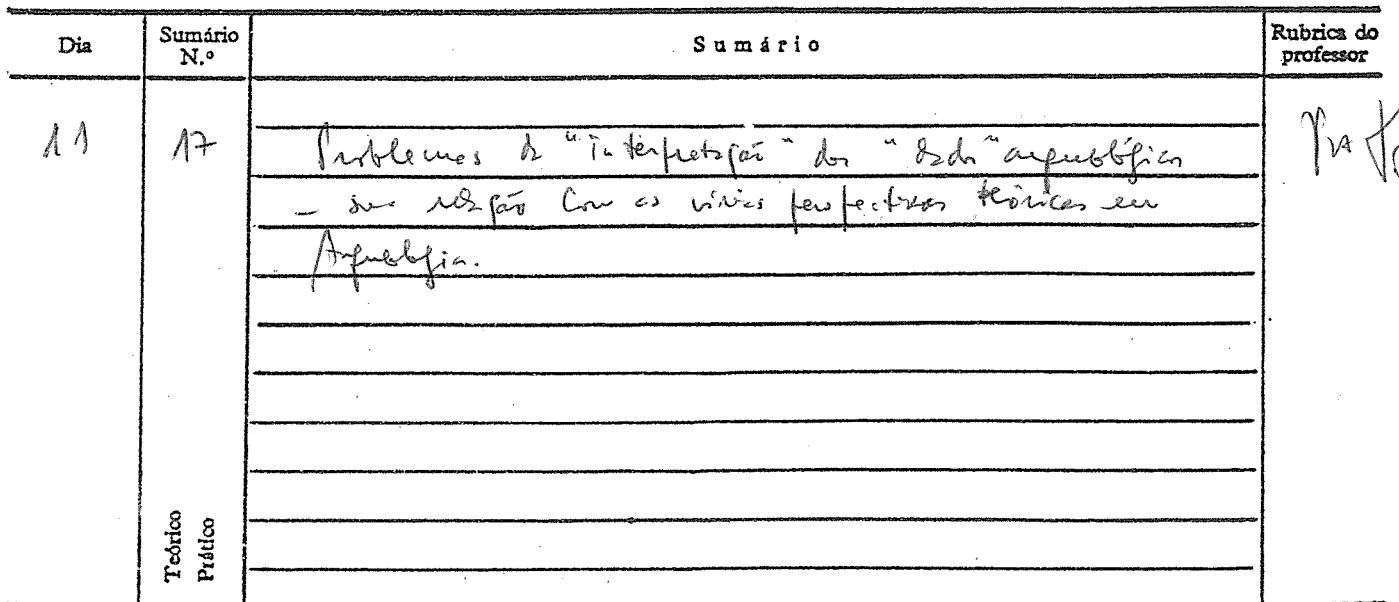 Dia Sumário N.º Sumário Rubrica do professor
11 17 Problemas da "interpretação" dos "dados" arqueológicos
- sua relação com as várias perspectivas teóricas em
Arqueologia.
Teórico
Prático